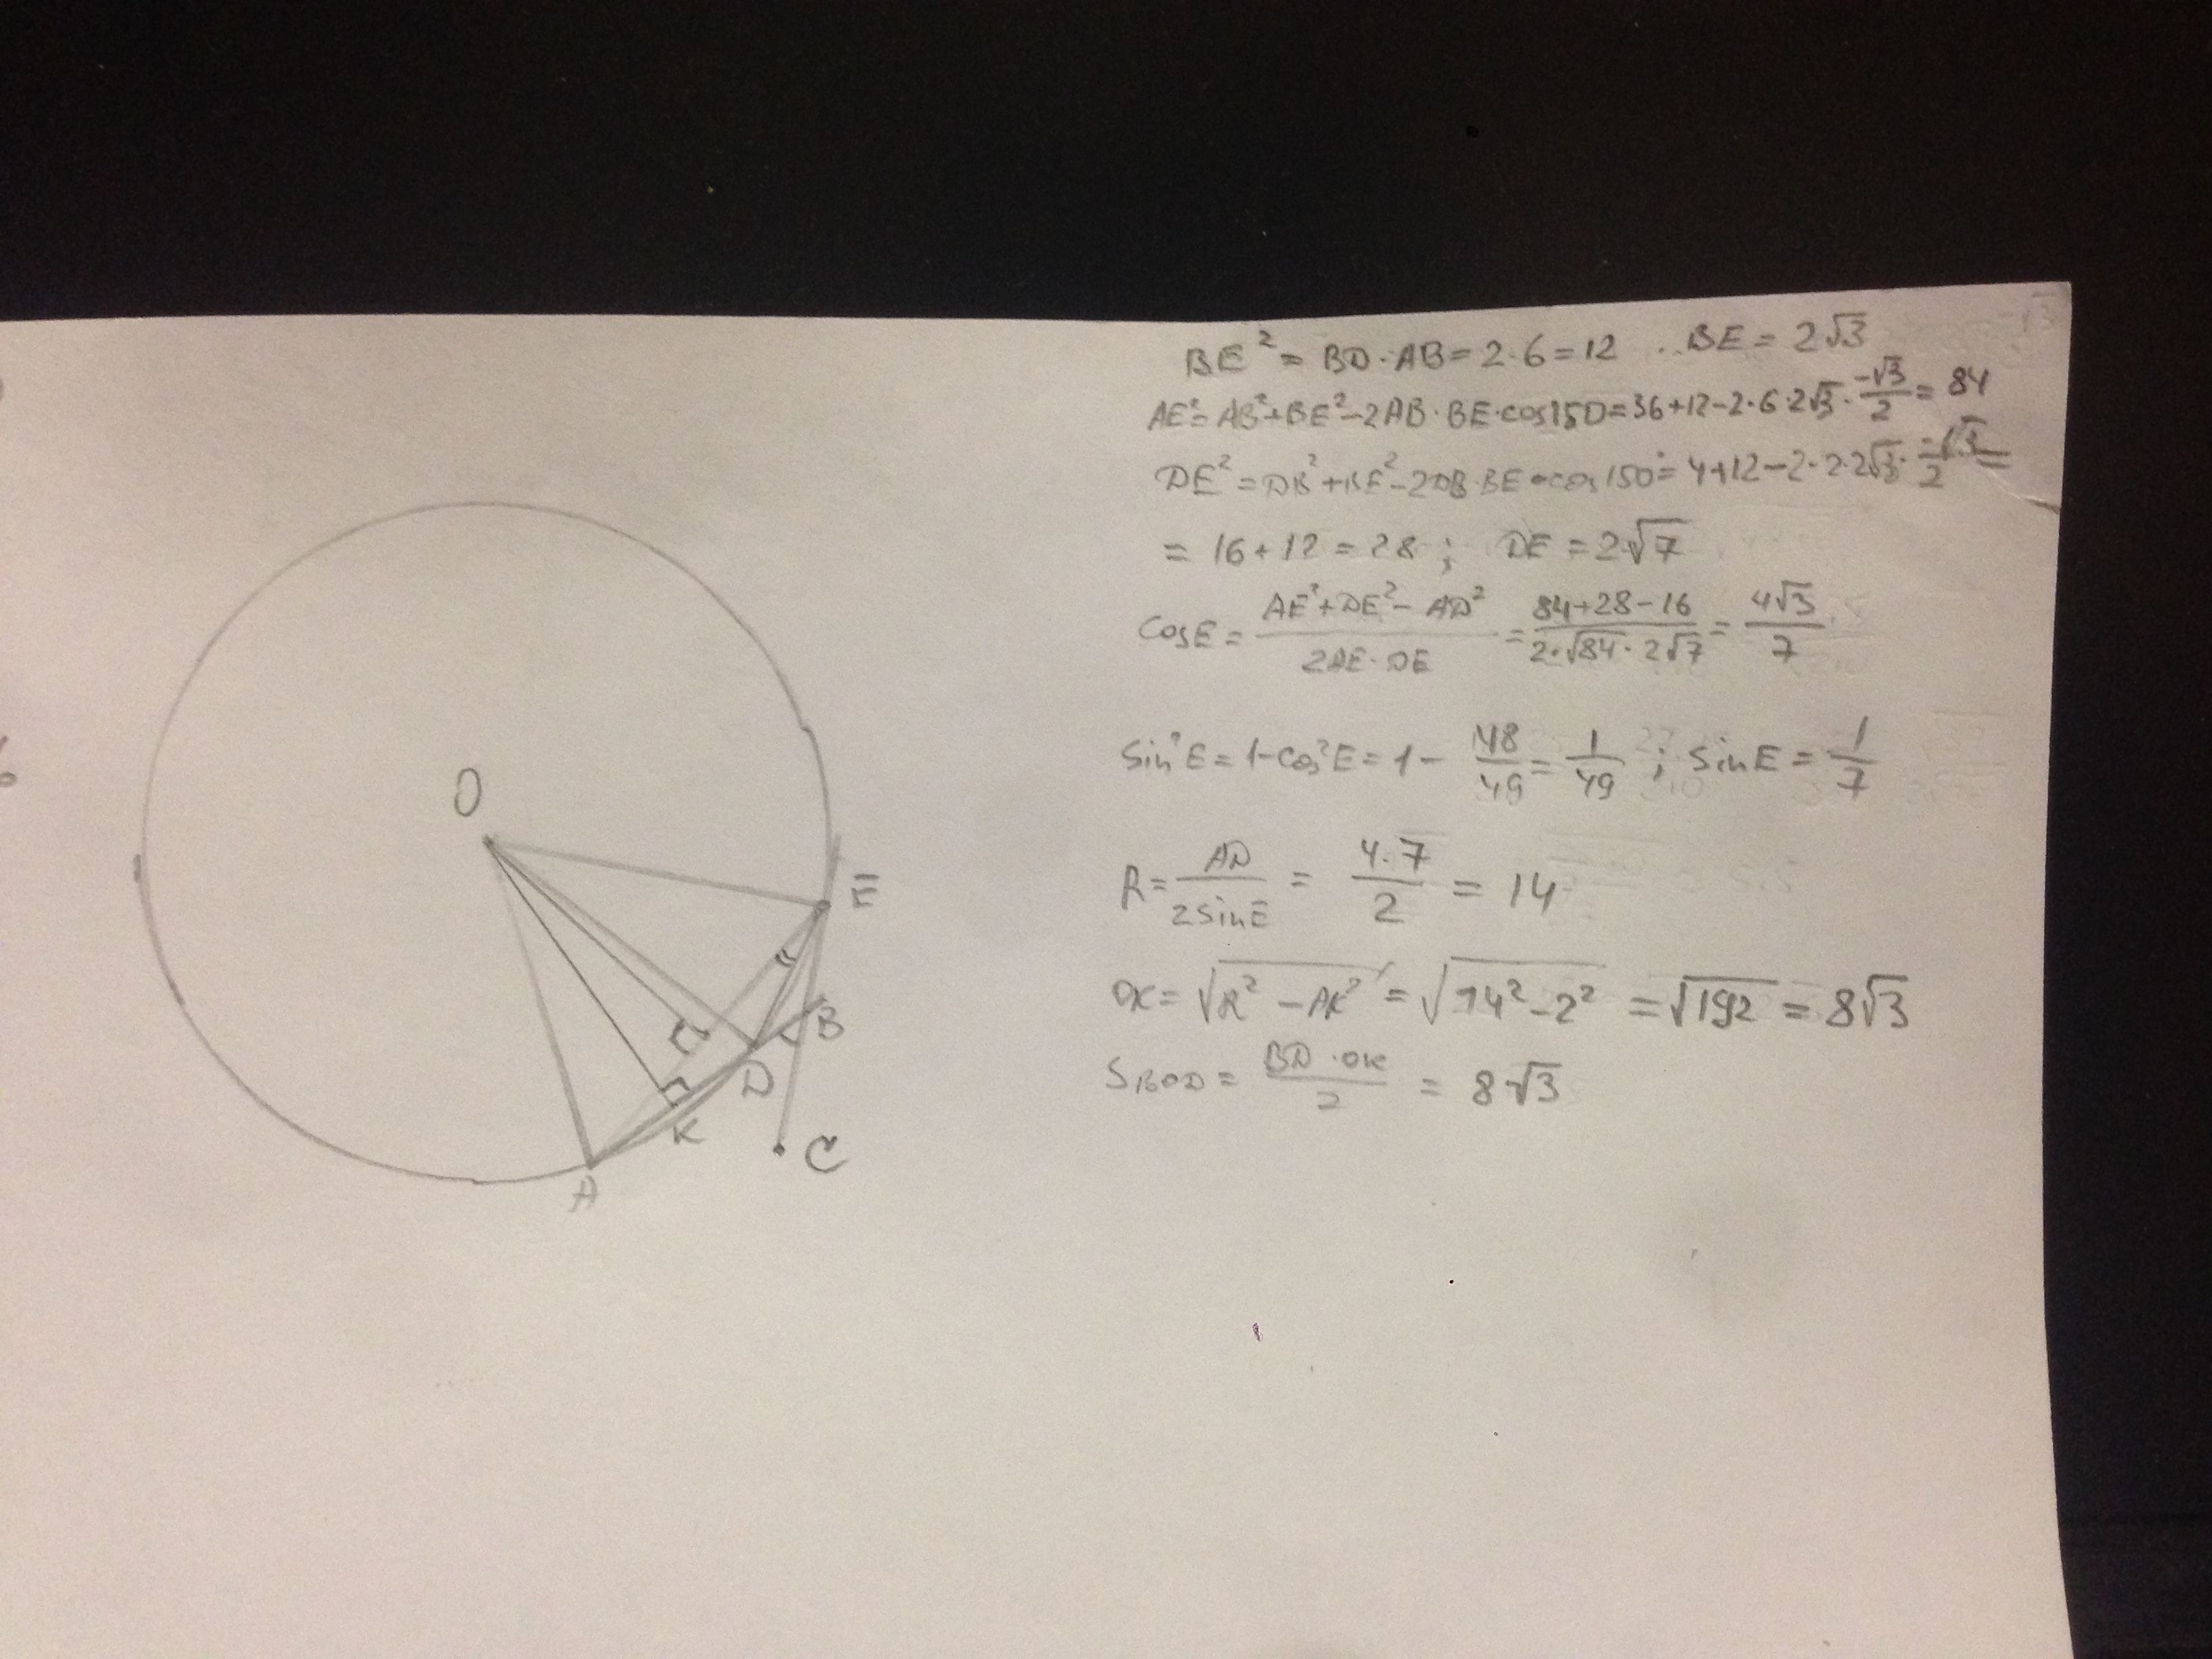 BE² = BD·AB = 2·6 = 12 BE = 2√3
AE² = AB² + BE² - 2AB·BE·cos150 = 36+12-2·6·2√3·-√3/2 = 84
DE² = DB² + BE² - 2DB·BE·cos150° = 4+12-2·2·2√3·-√3/2 =
= 16+12 = 28 ; DE = 2√7
cosE = AE²+DE²-AD²/2AE·DE = 84+28-16/2·√84·2√7 = 4√3/7
sin²E = 1-cos²E = 1- 48/49 = 1/49 ; sinE = 1/7
O
R = AD/2sinE = 4·7/2 = 14
E
OK = √R²-AK² = √14²-2² = √192 = 8√3
B
S BOD = BD·OK/2 = 8√3
D
K
C
A